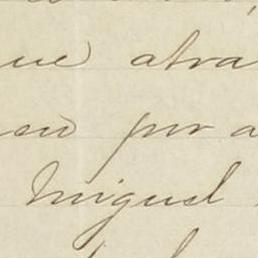 ue atra
en por a
Miguel